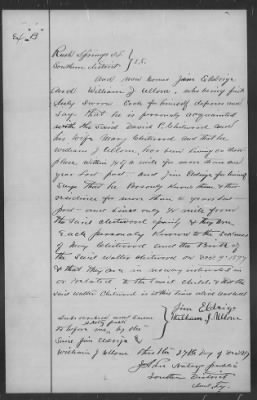 Ex "B"
Rush Springs I.T.
Southern District } SS.
And now comes Jim Eldrige
and William J Ullom, who being first
duly sworn Each for himself deposes and
say that he is personly acquainted
with the said David P. Chitwood and
his wife Mary Chitwood and that he
William J Ullom, has been living on their
place within 1/4 of a mile for more than one
year last past and Jim Eldrige for himself
Says that he Personly Know them & their
residence for more than years last
past and lives only mile from
the said Chitwood family
Each personaly Known to the
of Mary Chitwood and the Birth of
the said Walter Chitwood on
& that they are in noway interested in
or related to the said Child, & that the
said Walter Chitwood is at this time alive and well
Jim Eldrige
William J. Ullom
Subscribed and sworn
to before me by the
said Jim Eldrige &
William J Ullom this the 27th day of
John
Southern District
Ind Ty.